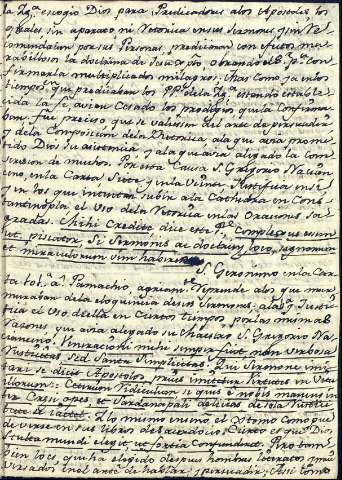 la Yg.ª escogio Dios para Predicadores a los Apostoles los
quales sin aparato ni Retorica en sus Sermones, y sin re
comendacion por sus Personas, predicaron con frutos ma
ravillosos la doctrina de Jesu xp̄to, obrando el S.r p.ª con
firmarla multiplicados milagros. Mas como ya en los
tiempos que predicaban los PP.es de la Yg.ª estando estable
cida la fe, avien cesado los prodigios que la confirma
ban fue preciso que se valiesen del arte de persuadir
y de la Composicion de la Rhetorica, a la que avia prome
tido Dios su asistencia y a la que avia aligado la con
version de muchos. Por esta causa S. Gregorio Nacian
ceno, en la Carta siete y en la
en los que intentan subir a la Cathedra en Cons
tantinopla el uso de la Retorica en las Oraciones Sa
gradas. Mihi credite dice este P.e
piscator, si Sermonis ac doctrinæ loco, signorum
et miraculorum vim haberem
S. Geronimo en la Car
ta a Pamachio, reprende a los que mur
muraban de la eloquencia de sus Sermones, Justi
fica el uso de ella en ciertos tiempos, por las mismas
rasones que avia alegado su Maestro S. Gregorio Na
cianceno. Venerationi mihi semper fuit, non verbosa
rusticitas, sed Sancta Simplicitas. Qui Sermone imi
tari se dicit Apostolos, prius imitetur virtutes in vita
illorum: Ceterum ridiculum si quis è nobis manens in
ter Cræsi opes, et Sardanapali delicias de sola rusti
citate se iactet. Lo mismo
de verse en sus libro de Sacerdocio Cierto es que Dios
stulta mundi elegit, ut fortia confunderet. Pero tam
bien lo es que ha elegido despues hombres literatos y mui
versados en el arte de hablar, y persuadir. Asi como